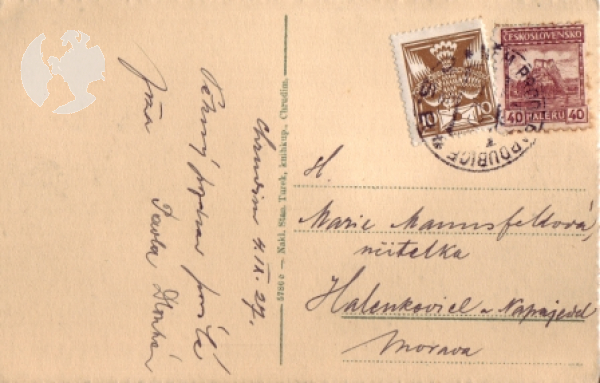 Chrudim 4.IX.27.
Pěkný pozdrav posílá
Pavla
5786 c — Nakl. Stan. Turek, knihkup., Chrudim.
ČESKOSLOVENSKO
40 HALÉŘŮ 40
10 10
PARDUBICE
Marie Mannsfeldová,
učitelka
Halenkovice u Napajedel
Morava